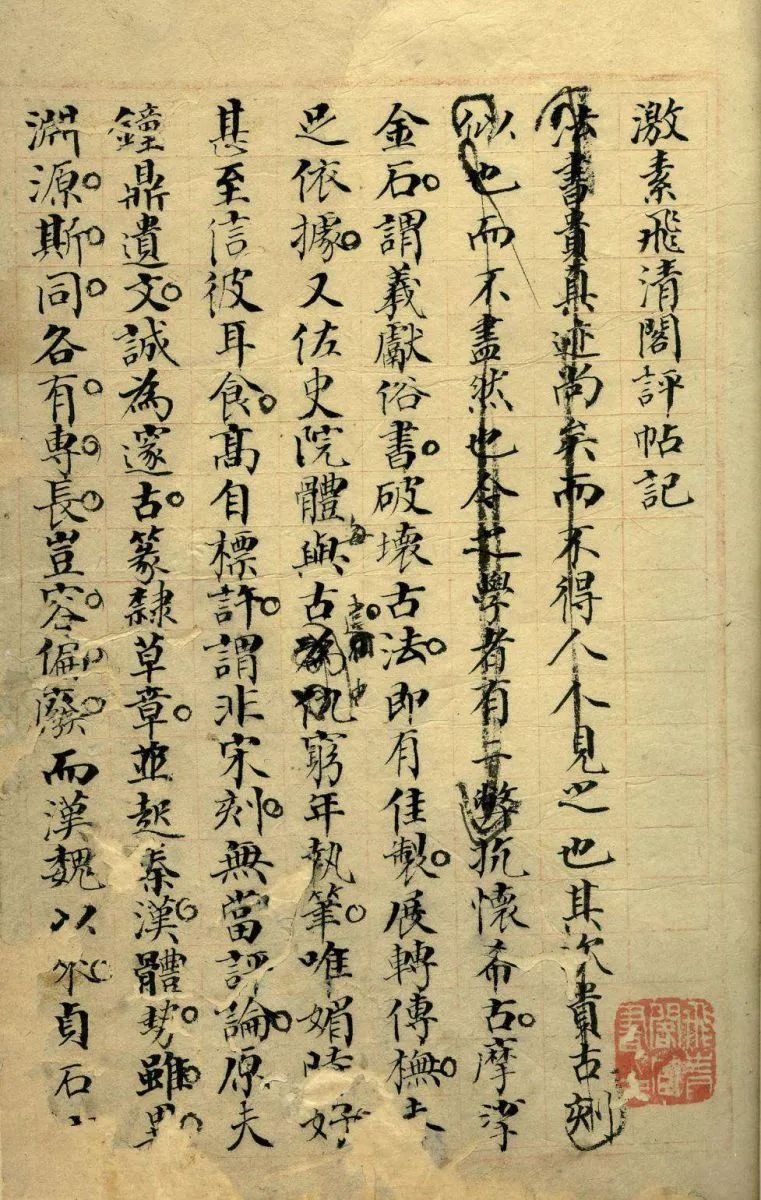 激素飛清閣評帖記
法書貴真迹尚矣而不得人人見之也其次貴古刻
似也而不盡然也今之學者有二弊抗懷希古摩挲
金石謂羲獻俗書破壞古法即有佳製展轉傳橅
足依據又佐史院體與古為仇窮年執筆唯媚
甚至信彼耳食高自標許謂非宋刻無當評論原夫
鐘鼎遺文誠為邃古篆隸草章並起秦漢體勢雖異
淵源斯同各有專長豈容偏廢而漢魏以來貞石